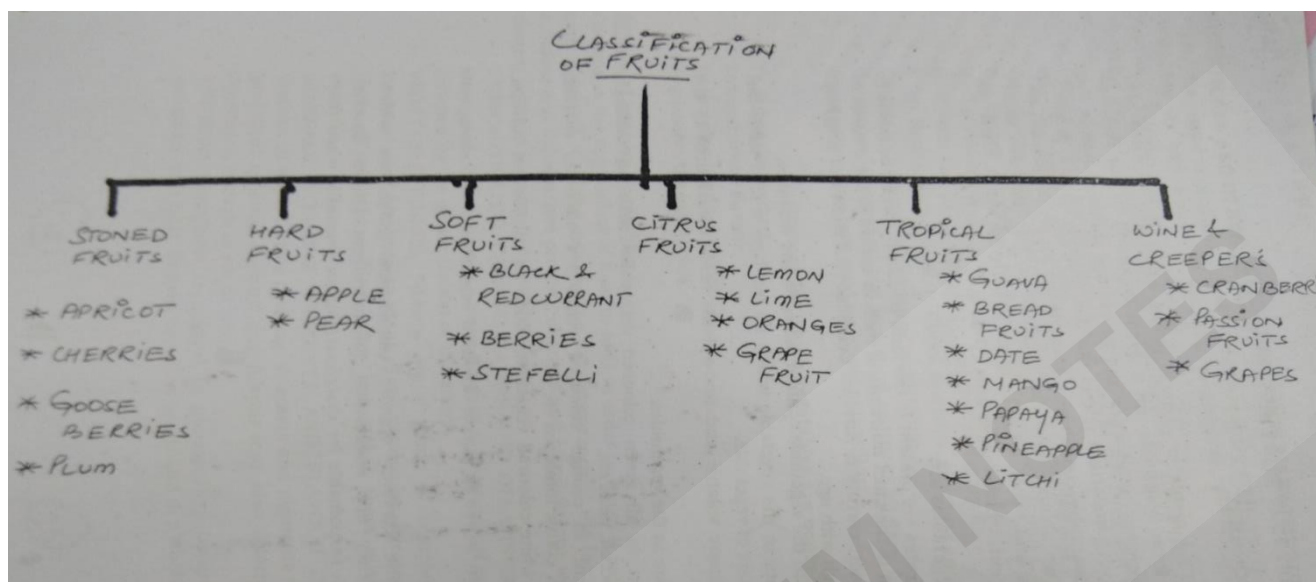 CLASSIFICATION
OF FRUITS
STONED
FRUITS
* APRICOT
* CHERRIES
* GOOSE
BERRIES
* PLUM
HARD
FRUITS
* APPLE
* PEAR
SOFT
FRUITS
* BLACK &
RED CURRANT
* BERRIES
* STEFELLI
CITRUS
FRUITS
* LEMON
* LIME
* ORANGES
* GRAPE
FRUIT
TROPICAL
FRUITS
* GUAVA
* BREAD
FRUITS
* DATE
* MANGO
* PAPAYA
* PINEAPPLE
* LITCHI
WINE &
CREEPER'S
* CRANBERR
* PASSION
FRUITS
* GRAPES
M NOTES